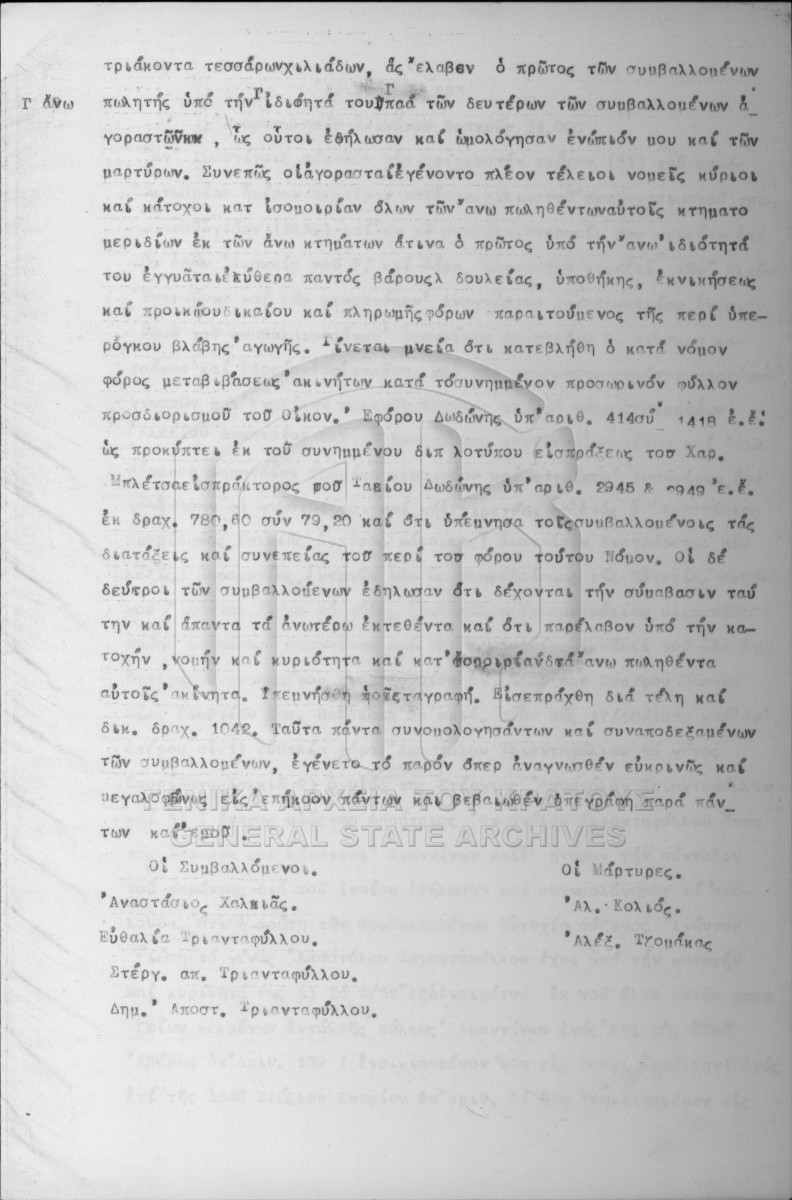 τριάκοντα τεσσάρωνχιλιάδων, ἅς ἔλαβεν ὁ πρῶτος τῶν συμβαλλομένων
Γ ἄνω
πωλητής ὑπό τήν Γ ἰδιότητά του Γ παά τῶν δευτέρων τῶν συμβαλλομένων ἀ-
γοραστῶν , ὡς οὗτοι ἐδήλωσαν καί ὡμολόγησαν ἐνώπιόν μου καί τῶν
μαρτύρων. Συνεπῶς οἱἀγορασταίἐγένοντο πλέον τέλειοι νομεῖς κύριοι
καί κάτοχοι κατ ἰσομοιρίαν ὅλων τῶν ἄνω πωληθέντωναὐτοῖς κτηματο
μεριδίων ἐκ τῶν ἄνω κτημάτων ἅτινα ὁ πρῶτος ὑπό τήν ἄνω ἰδιότητά
του ἐγγυᾶταιἐλύθερα παντός βάρουςλ δουλείας, ὑποθήκης, ἐκνικήσεως
καί προικώουδικαίου καί πληρωμῆς φόρων παραιτούμενος τῆς περί ὑπε-
ρόγκου βλάβης ἀγωγῆς. Γίνεται μνεία ὅτι κατεβλήθη ὁ κατά νόμον
φόρος μεταβιβάσεως ἀκινήτων κατά τόσυνημμένον προσωρινόν φύλλον
προσδιορισμοῦ τοῦ Οἰκον. Ἐφόρου Δωδώνης ὑπ'ἀριθ. 414σύ 1418 ἐ.ἔ.
ὡς προκύπτει ἐκ τοῦ συνημμένου διπ λοτύπου εἰσπράξεως τοῦ Χαρ.
Μπλέτσαεἰσπράκτορος Ταείου Δωδώνης ὑπ'ἀριθ. 2945 & 2949 ἐ.ἔ.
ἐκ δραχ. 780,60 σύν 79,20 καί ὅτι ὑπέμνησα τοῖςσυμβαλλομένοις τάς
διατάξεις καί συνεπείας τοῦ περί τοῦ φόρου τούτου Νόμον. Οἱ δέ
δεύτροι τῶν συμβαλλομένων ἐδήλωσαν ὅτι δέχονται τήν σύμαβασιν ταύ
την καί ἅπαντα τά ἀνωτέρω ἐκτεθέντα καί ὅτι παρέλαβον ὑπό τήν κα-
τοχήν ,νομήν καί κυριότητα καί κατ' ἄνω πωληθέντα
αὐτοῖς ἀκίνητα. Ὑπεμνήσθη Εἰσεπράχθη διά τέλη καί
δικ. δραχ. 1042. Ταῦτα πάντα συνομολογησάντων καί συναποδεξαμένων
τῶν συμβαλλομένων, ἐγένετο τό παρόν ὅπερ ἀναγνωσθέν εὐκρινῶς καί
μεγαλοφώνως εἰς ἐπήκοον πάντων καί βεβαιωθέν ὑπεγράφη παρά πάν-
των καί ἐμοῦ .
ΓΕΝΙΚΑ ΑΡΧΕΙΑ ΤΟΥ ΚΡΑΤΟΥΣ
GENERAL STATE ARCHIVES
Οἱ Συμβαλλόμενοι.
Ἀναστάσιος Χαλκιᾶς.
Εὐθαλία Τριανταφύλλου.
Στέργ. απ. Τριανταφύλλου.
Δημ. Ἀποστ. Τριανταφύλλου.
Οἱ Μάρτυρες.
Ἀλ. Κολιός.
Ἀλέξ. Τζομάκας